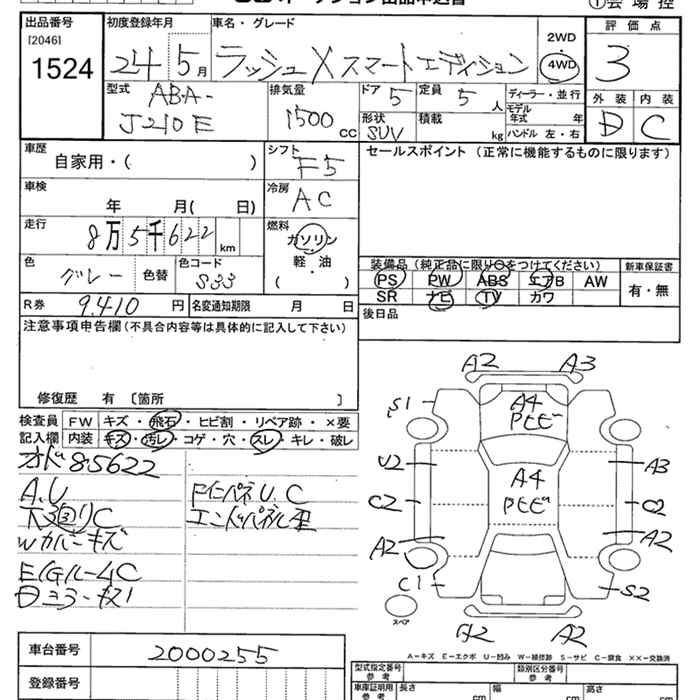 出品番号 初度登録年月 車名・グレード 評価点
[2046]
1524 24 5月 ラッシュ X スマートエディション 2WD 4WD 3
型式 ABA-J210E 排気量 1500 cc
ドア 5 定員 5 人 ディーラー・並行
形状 SUV 積載 kg モデル年式 年 ハンドル 左・右
外装 D 内装 C
車歴 自家用・( ) シフト F5
セールスポイント(正常に機能するものに限ります)
車検 年 月( 日) 冷房 AC
走行 8万5千622 km 燃料 ガソリン 軽・油 ( )
色 グレー 色替 色コード S33
装備品(純正品に限り○をつけてください) 新車保証書
PS PW ABS エアB AW 有・無
SR ナビ TV カワ
R券 9,410 円 名変通知期限 月 日
後日品
注意事項申告欄(不具合内容等は具体的に記入して下さい)
修復歴 有 〔箇所 〕
検査員記入欄 FW キズ・飛石・ヒビ割・リペア跡・×要
内装 キズ・汚レ・コゲ・穴・スレ・キレ・破レ
オドー85622
A.U
下廻りC
Wカバーキズ
E/GルームC
ミラーキズ
FインパネU.C
エンドパネル歪
A2 A3
S1 A4
U2 A3
A4
C2 C2
A2 A2
C1 S2
スペア
A2 A2
A-キズ E-エクボ U-凹み W-補修跡 S-サビ C-腐食 XX-交換済
車台番号 2000255
登録番号
型式指定番号 参考 類別区分番号 参考
車庫証明用 参考 長さ cm 幅 cm 高さ cm